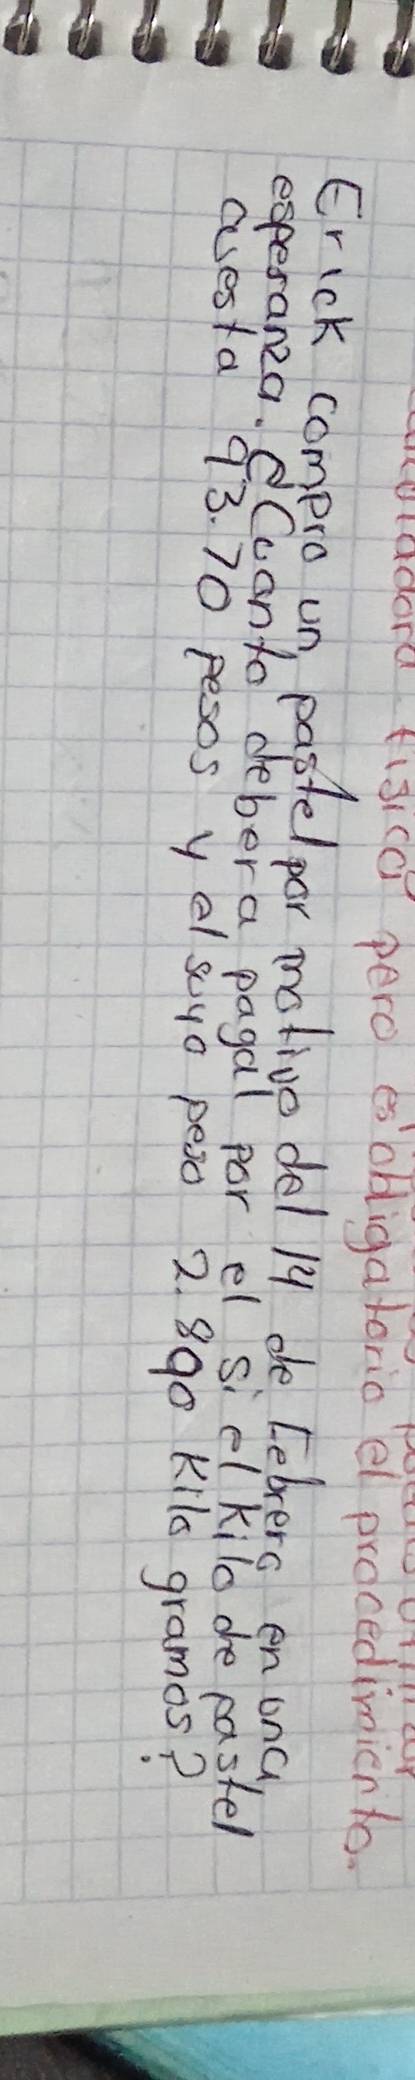 física pero es obligatorio el procedimiento.
Erick compro un pastel por motivo del 14 de Febrero en una
esperanza. ¿Cuanto debera pagar por el si el kilo de pastel
cuesta 93.70 pesos y el suyo peso 2.890 kilo gramos?